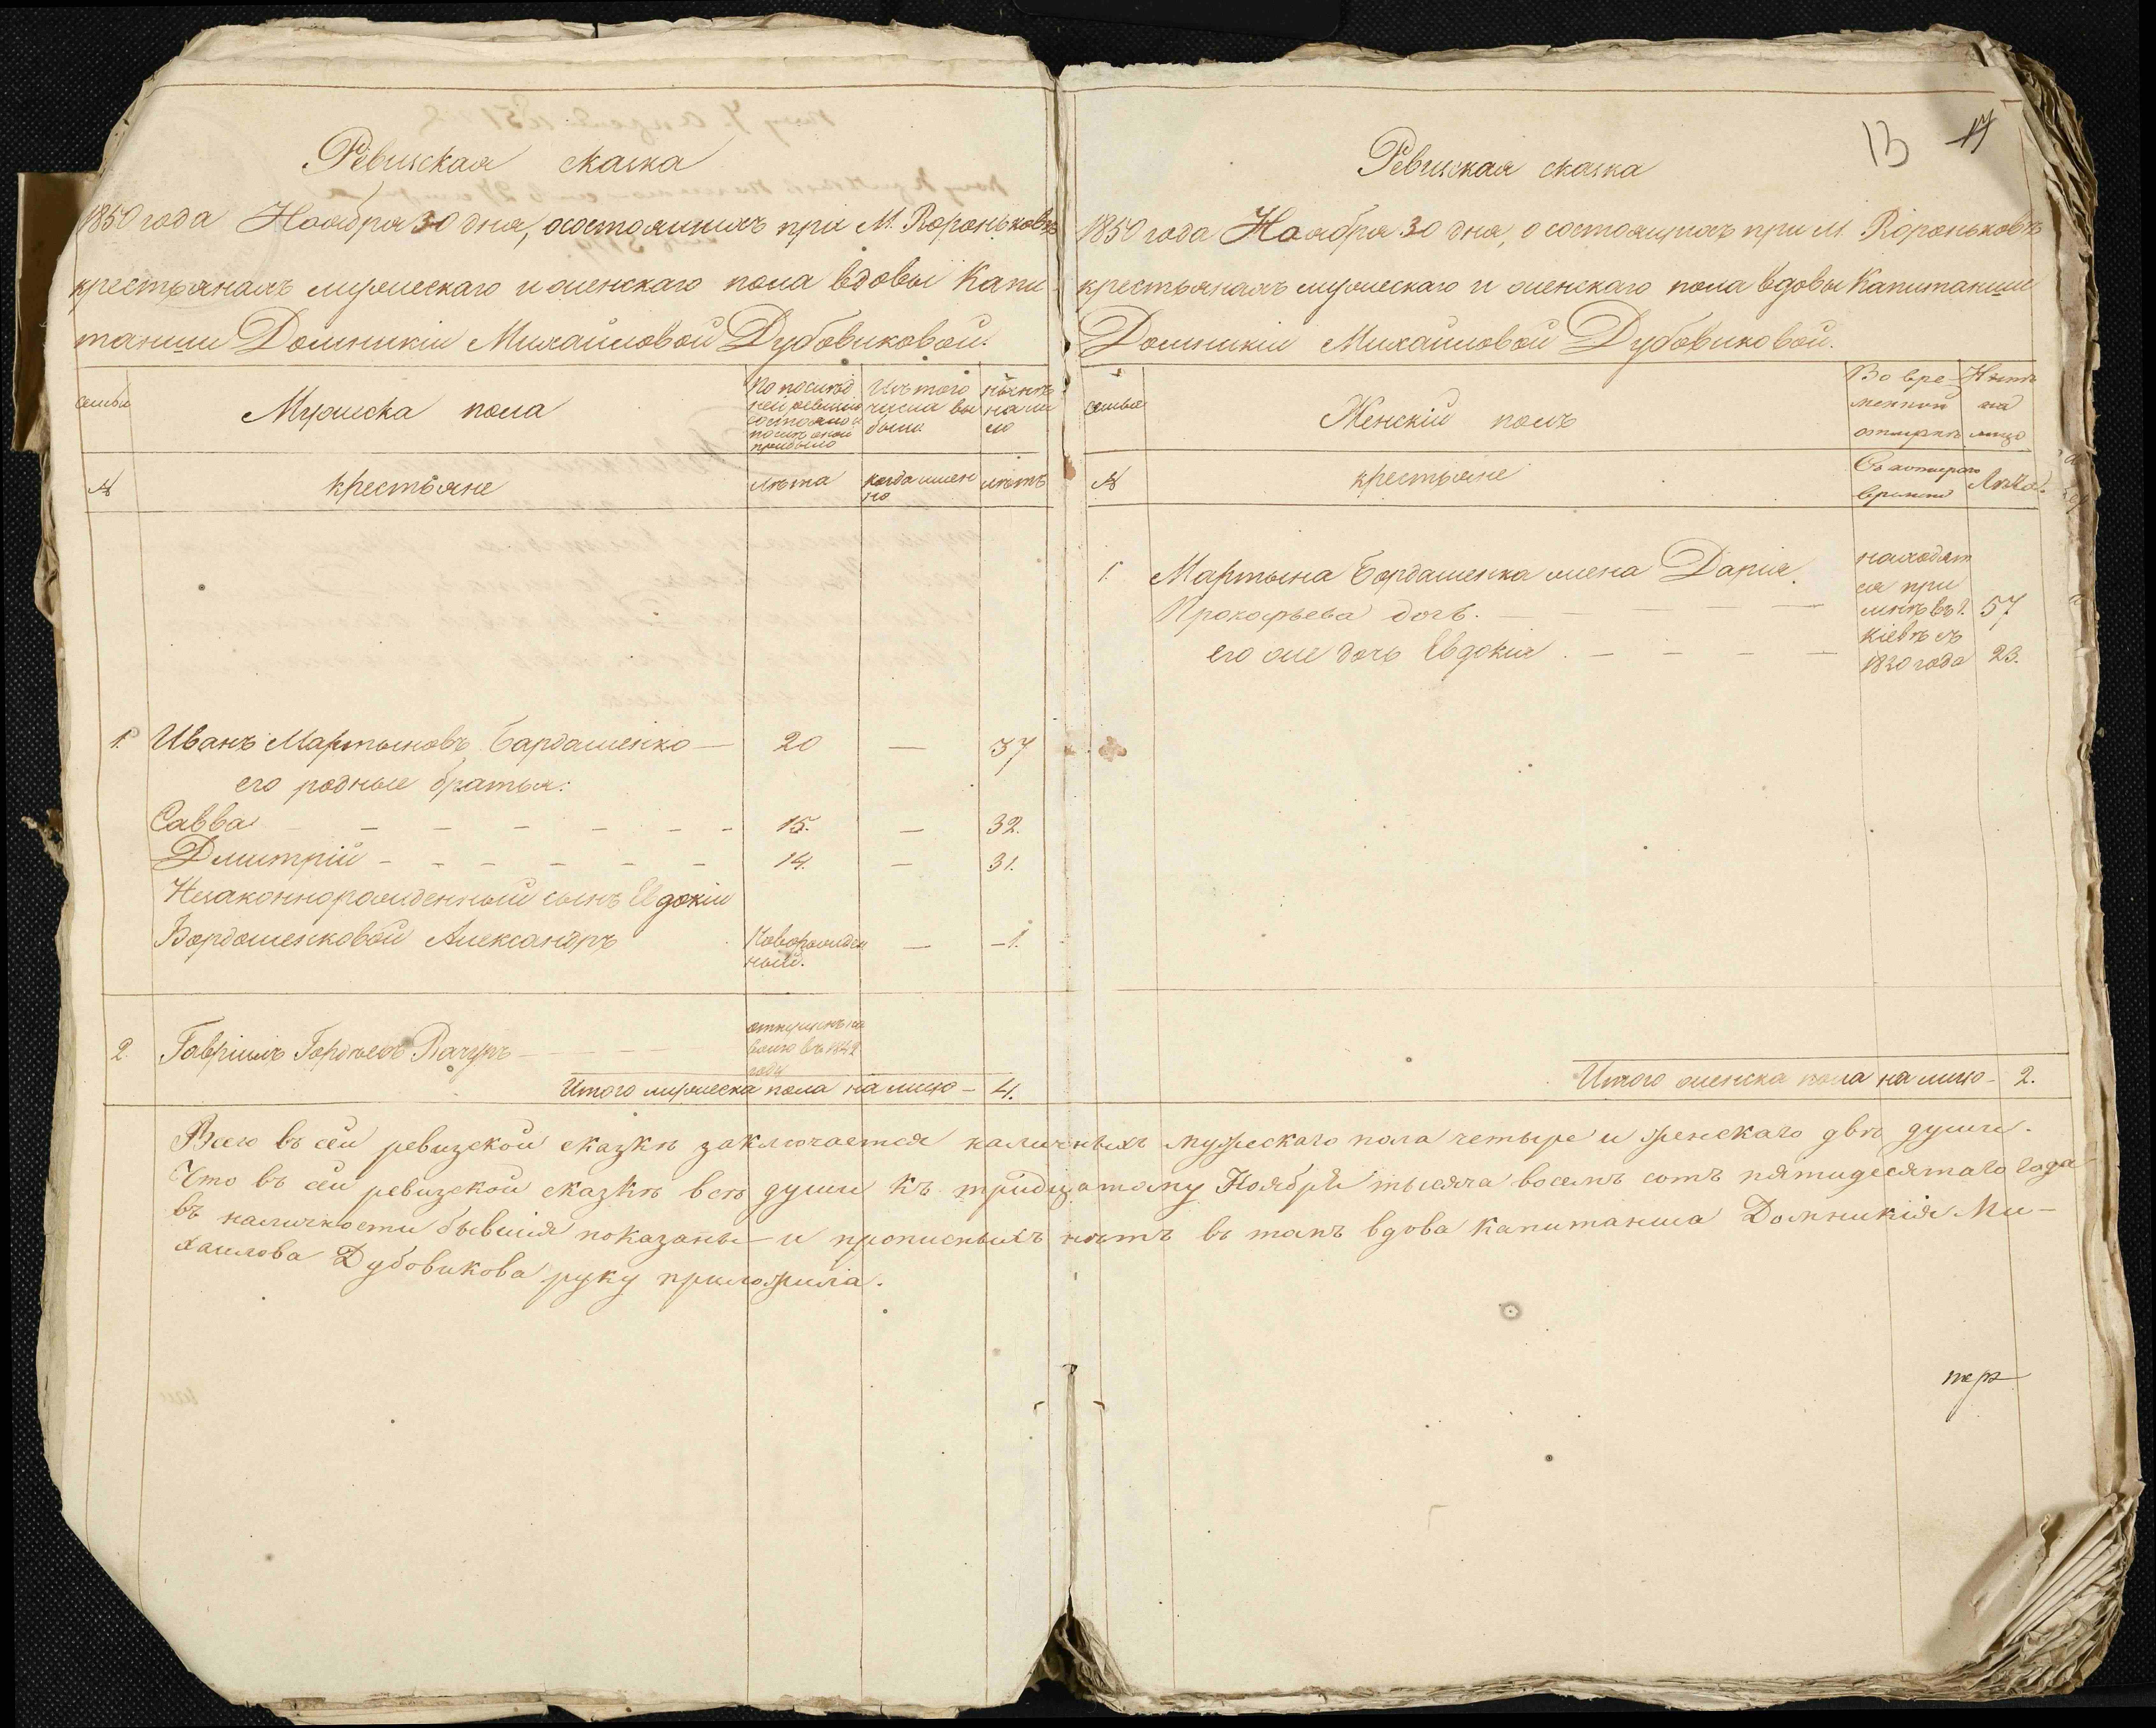 Ревизская сказка
1850 года Ноября 30 дня, о состоящихъ при М. Вороньковѣ
крестьянахъ мужескаго и женскаго пола вдовы Капи-
танши Домникіи Михайловой Дубовиковой.
семьи
Мужеска пола
По послѣд
ней ревизіи
состояло и
послѣ оной
прибыло
Изъ того
числа вы
было
нынѣ
на ли
цо
№
крестьяне
лѣта
когда имен
но
лѣтъ
1. Иванъ Мартыновъ Бардашенко — 20 — 37
его родные братья:
Савва — — — — — — — 15. — 32.
Дмитрій — — — — — — 14. — 31.
Незаконнорожденный сынъ Евдокіи
Бордашенковой Александръ Новорожден
ный. — — 1.
2. Гавріилъ Гордѣевъ Вачуръ — — —
отпущенъ на
волю въ 1849
году
Итого мужеска пола на лицо — 4.
13 17
Ревизская сказка
1850 года Ноября 30 дня, о состоящихъ при М. Вороньковѣ
крестьянахъ мужескаго и женскаго пола вдовы Капитанши
Домникіи Михайловой Дубовиковой.
семьи
Женскій полъ
Во вре-
менной
отлучкѣ
Нынѣ
на
лицо
№
крестьяне
Съ котораго
времени
Лѣта.
1. Мартына Бордашенка жена Дарія
Прокофьева дочь. — — — 57
его же дочь Евдокія. — — — — 23.
находят
ся при
мнѣ въ г.
Кіевѣ съ
1820 года
Итого женска пола на лицо — 2.
Всего въ сей ревизской сказкѣ заключается наличныхъ мужескаго пола четыре и женскаго двѣ души.
Что въ сей ревизской сказкѣ всѣ души къ тридцатому Ноября тысяча восемъ сотъ пятидесятаго года
въ наличности бывшія показаны и прописныхъ нѣтъ въ томъ вдова капитанша Домникія Ми-
хайлова Дубовикова руку приложила.